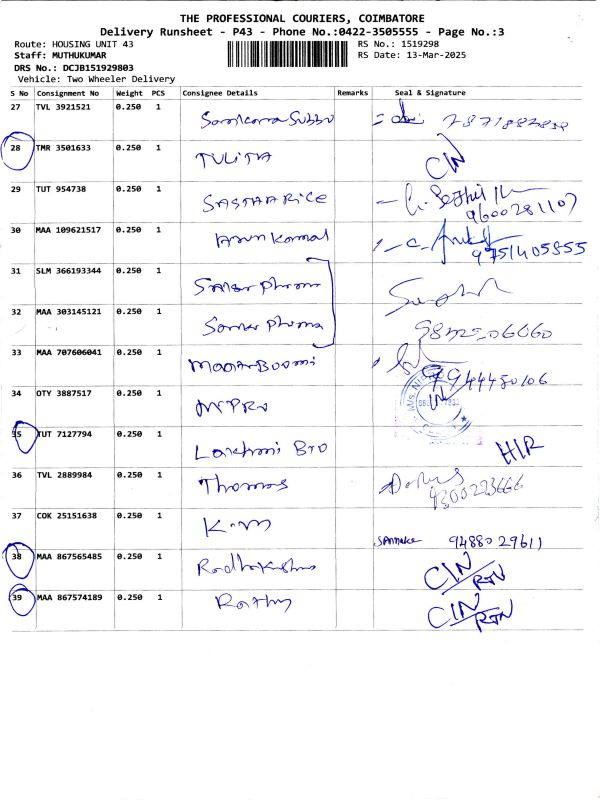 THE PROFESSIONAL COURIERS, COIMBATORE
Delivery Runsheet - P43 - Phone No.:0422-3505555 - Page No.:3
Route: HOUSING UNIT 43 RS No.: 1519298
Staff: MUTHUKUMAR RS Date: 13-Mar-2025
DRS No.: DCJB151929803
Vehicle: Two Wheeler Delivery
S No Consignment No Weight PCS Consignee Details Remarks Seal & Signature
27 TVL 3921521 0.250 1 Sankara Subbu
28 TMR 3501633 0.250 1 TULITA CIN
29 TUT 954738 0.250 1 SASTHA RICE 9600281107
30 MAA 109621517 0.250 1 Arun Komal 9751405855
31 SLM 366193344 0.250 1 Saner Pharma
32 MAA 303145121 0.250 1 Saner Pharma
33 MAA 707606041 0.250 1 Maan Boomi 9944480106
34 OTY 3887517 0.250 1
35 TUT 7127794 0.250 1 Laxhmi Bro H/R
36 TVL 2889984 0.250 1 Thomas
37 COK 25151638 0.250 1 K.M 9488029611
38 MAA 867565485 0.250 1 CIN/RTN
39 MAA 867574189 0.250 1 Rathy CIN/RTN